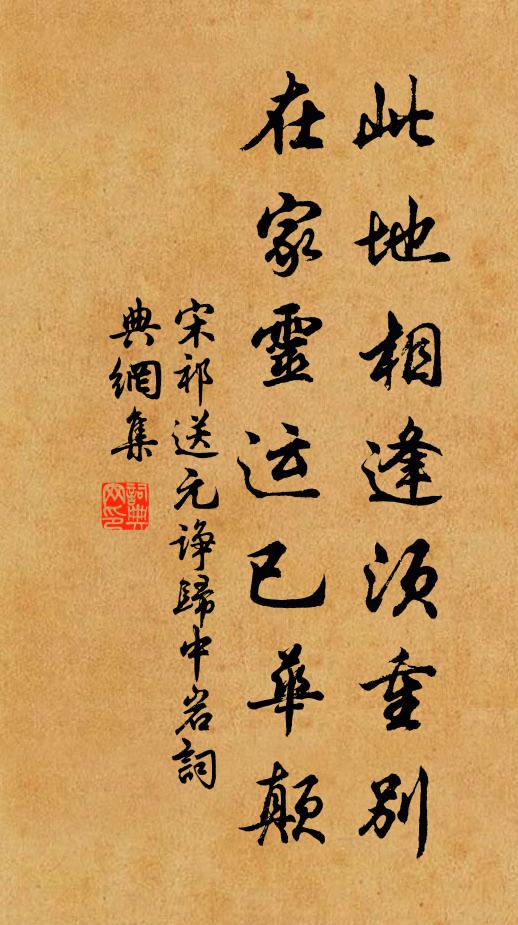 此地相逢須重別
在家靈运已華顛
宋祁送元諍歸中岩詞
典網集
詞典網印